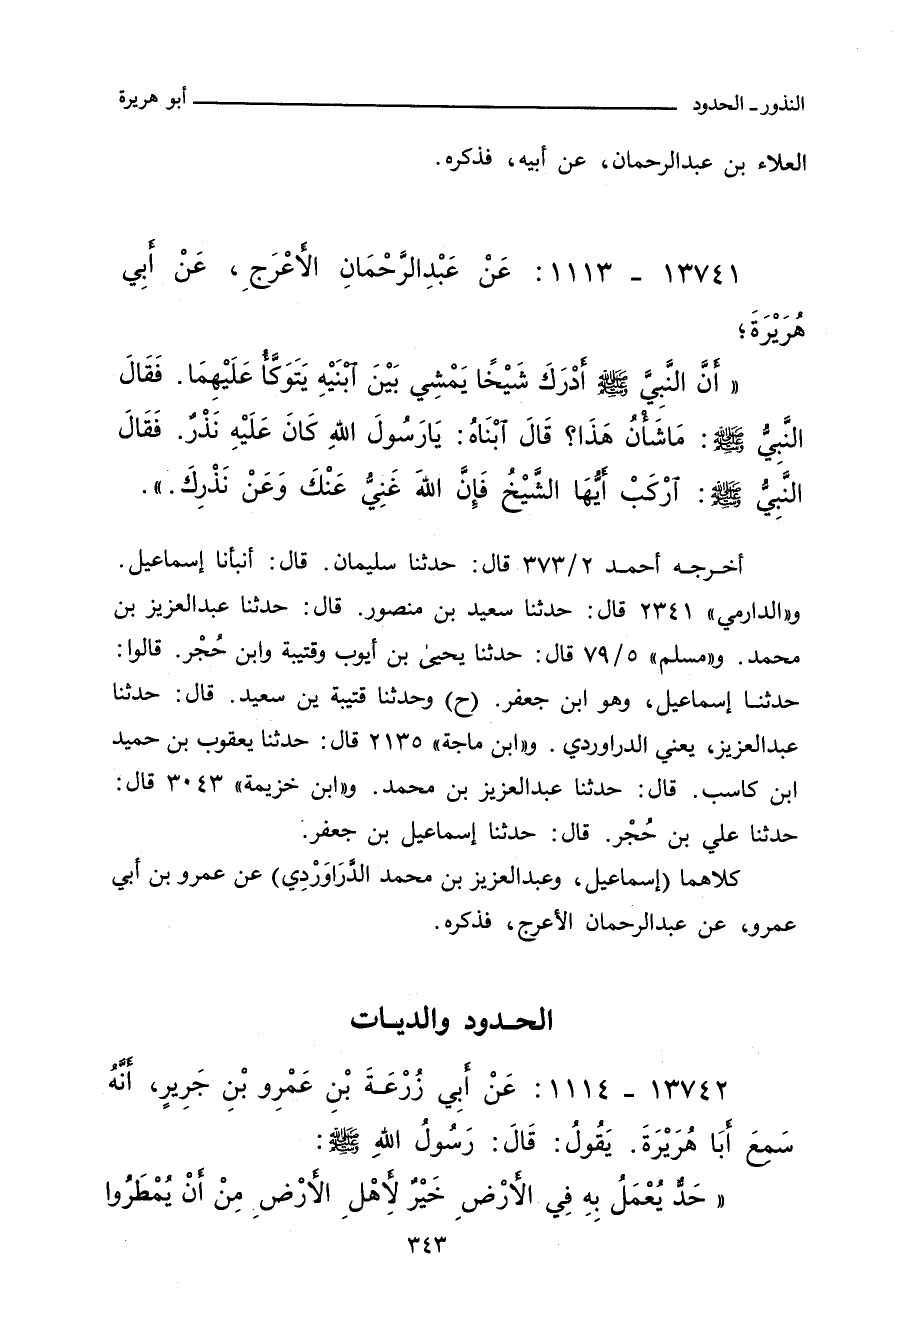 النذور - الحدود ــــــــــــــــــــ أبو هريرة
العلاء بن عبدالرحمان، عن أبيه، فذكره.
١٣٧٤١ - ١١١٣: عَنْ عَبْدِالرَّحْمَانِ الأَعْرَجِ، عَنْ أَبِي
هُرَيْرَةَ؛
« أَنَّ النَّبِيَّ ﷺ أَدْرَكَ شَيْخًا يَمْشِي بَيْنَ ٱبْنَيْهِ يَتَوَكَّأُ عَلَيْهِمَا. فَقَالَ
النَّبِيُّ ﷺ: مَاشَأْنُ هَذَا؟ قَالَ ٱبْنَاهُ: يَارَسُولَ اللهِ كَانَ عَلَيْهِ نَذْرٌ. فَقَالَ
النَّبِيُّ ﷺ: ٱرْكَبْ أَيُّهَا الشَّيْخُ فَإِنَّ اللهَ غَنِيٌّ عَنْكَ وَعَنْ نَذْرِكَ.».
أخـرجـه أحمـد ٣٧٣/٢ قال: حدثنا سليمان. قال: أنبأنا إسماعيل.
و«الدارمي» ٢٣٤١ قال: حدثنا سعيد بن منصور. قال: حدثنا عبدالعزيز بن
محمد. و«مسلم» ٧٩/٥ قال: حدثنا يحيىٰ بن أيوب وقتيبة وابن حُجْر. قالوا:
حدثنـا إسماعيل، وهو ابن جعفر. (ح) وحدثنا قتيبة ين سعيد. قال: حدثنا
عبدالعزيز، يعني الدراوردي . و«ابن ماجة» ٢١٣٥ قال: حدثنا يعقوب بن حميد
ابن كاسب. قال: حدثنا عبدالعزيز بن محمد. و«ابن خزيمة» ٣٠٤٣ قال:
حدثنا علي بن حُجْر. قال: حدثنا إسماعيل بن جعفر.
كلاهما (إسماعيل، وعبدالعزيز بن محمد الدَّرَاوَرْدِي) عن عمرو بن أبي
عمرو، عن عبدالرحمان الأعرج، فذكره.
الحـدود والديـات
١٣٧٤٢ - ١١١٤: عَنْ أَبِي زُرْعَـةَ بْنِ عَمْرِو بْنِ جَرِيرٍ، أَنَّهُ
سَمِعَ أَبَا هُرَيْرَةَ. يَقُولُ: قَالَ: رَسُولُ اللهِ ﷺ:
« حَدٌّ يُعْمَلُ بِهِ فِي الأَرْضِ خَيْرٌ لِأَهْلِ الأَرْضِ مِنْ أَنْ يُمْطَرُوا
٣٤٣